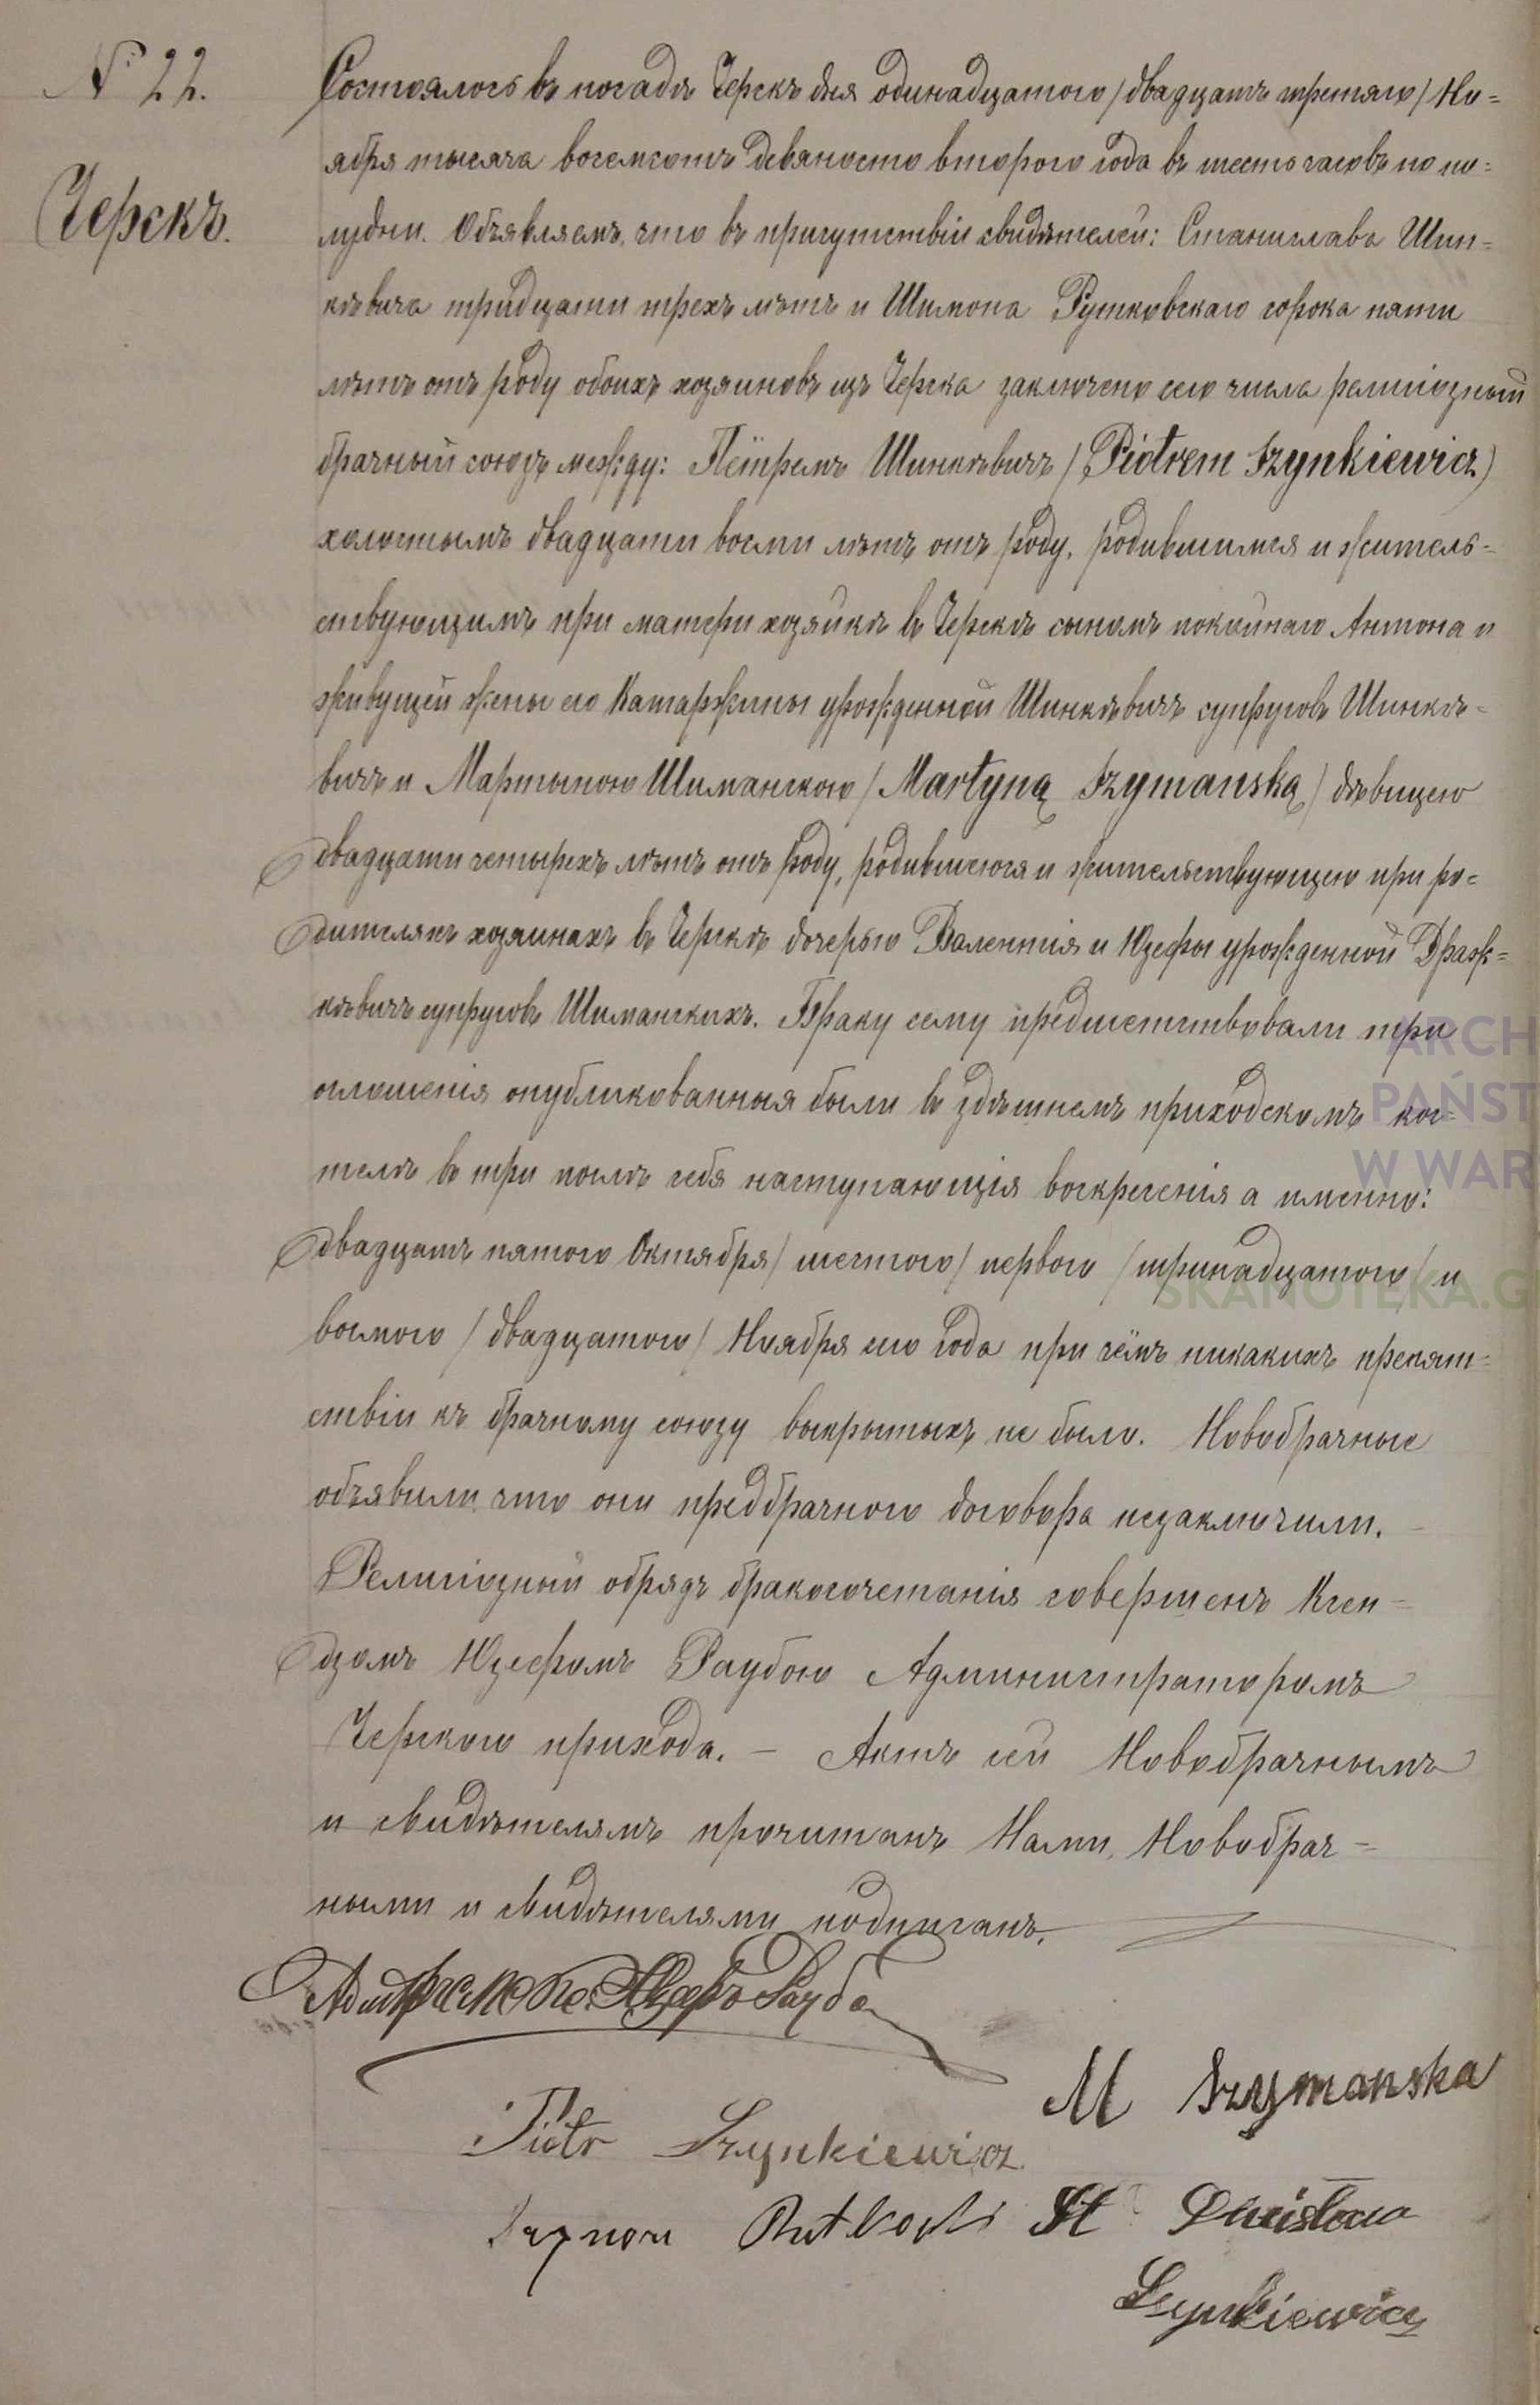 № 22.
Черскъ.
Состоялось въ посадѣ Черскъ дня одинадцатого /двадцать третяго/ Но=
ября тысяча восемсотъ девяносто второго года въ шесть часовъ по по=
лудни. Объявляемъ, что въ присутствіи свидѣтелей: Станислава Шин=
кѣвича тридцати трехъ лѣтъ и Шимона Рутковскаго сорока пяти
лѣтъ отъ роду обоихъ хозяиновъ изъ Черска заключено сего числа религіозный
брачный союзъ между: Пётремъ Шинкѣвичъ /Piotrem Szynkiewicz)
холостымъ двадцати восми лѣтъ отъ роду, родившимся и житель=
ствующимъ при матери хозяйкѣ в Черскѣ сыномъ покойнаго Антона и
живущей жены его Катаржины урожденной Шинкѣвичъ супруговъ Шинкѣ=
вичъ и Мартыною Шиманскою /Martyną Szymanską/ дѣвицею
двадцати четырехъ лѣтъ отъ роду, родившеюся и жительствующею при ро=
дителяхъ хозяинахъ в Черскѣ дочерью Валентія и Юзефы урожденной Драж=
кѣвичъ супруговъ Шиманскихъ. Браку сему предшествовали три
оглошенія опубликованныя были в здѣшнемъ приходскомъ кос=
телѣ в три послѣ себя наступающія воскресенія а именно:
двадцать пятого Октября/ шестого/ первого /тринадцатого/ и
восмого /двадцатого/ Ноября сего года при чёмъ никакихъ препят=
ствіи къ брачному союзу выкрытыхъ не было. Новобрачные
объявили, что они предбрачного договора незаключили.
Религіозный обрядъ бракосочетанія совершенъ Ксен=
дзомъ Юзефомъ Раубою Администраторомъ
Черского прихода. — Актъ сей Новобрачнымъ
и свидѣтелямъ прочитанъ Нами, Новобрач=
ными и свидѣтелями подписанъ.
Юзефъ Рауба
M Szymanska
Piotr Szynkiewicz
Szymon Rutkoski St
Szynkiewicz
ARCH
PAŃST
W WAR
SKANOTEKA.G